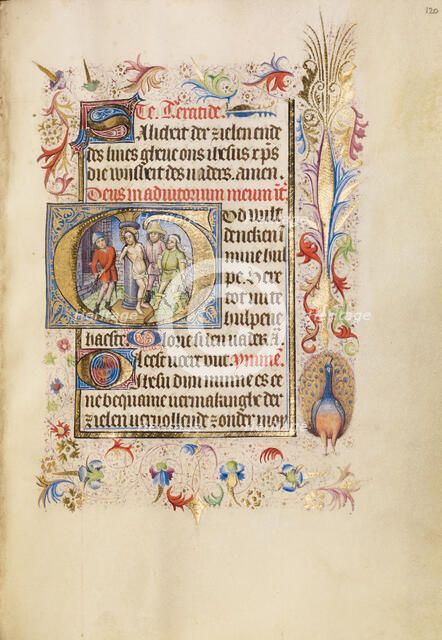 120
Te. Tercide.
Salicheit der zielen ende
des lives gheue ons ihesus xps
die wijsheit des vaders. amen.
Deus in adiutorium meum īt
God wilt
dencken ī
mine hul
pe. Here
tot mire
hulpen
haeste. Glorie si den vader ā
Als eest voere was. ymme.
Ihesu dijn minne es ee
ne bequame vermakinghe der
zielen vervollende zonder moy
heritage
Heritage
heritage